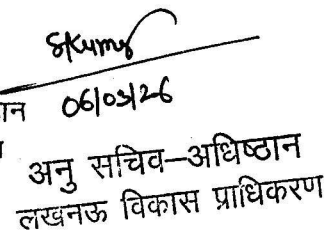 SKumar
06/03/26
अनु सचिव–अधिष्ठान
लखनऊ विकास प्राधिकरण